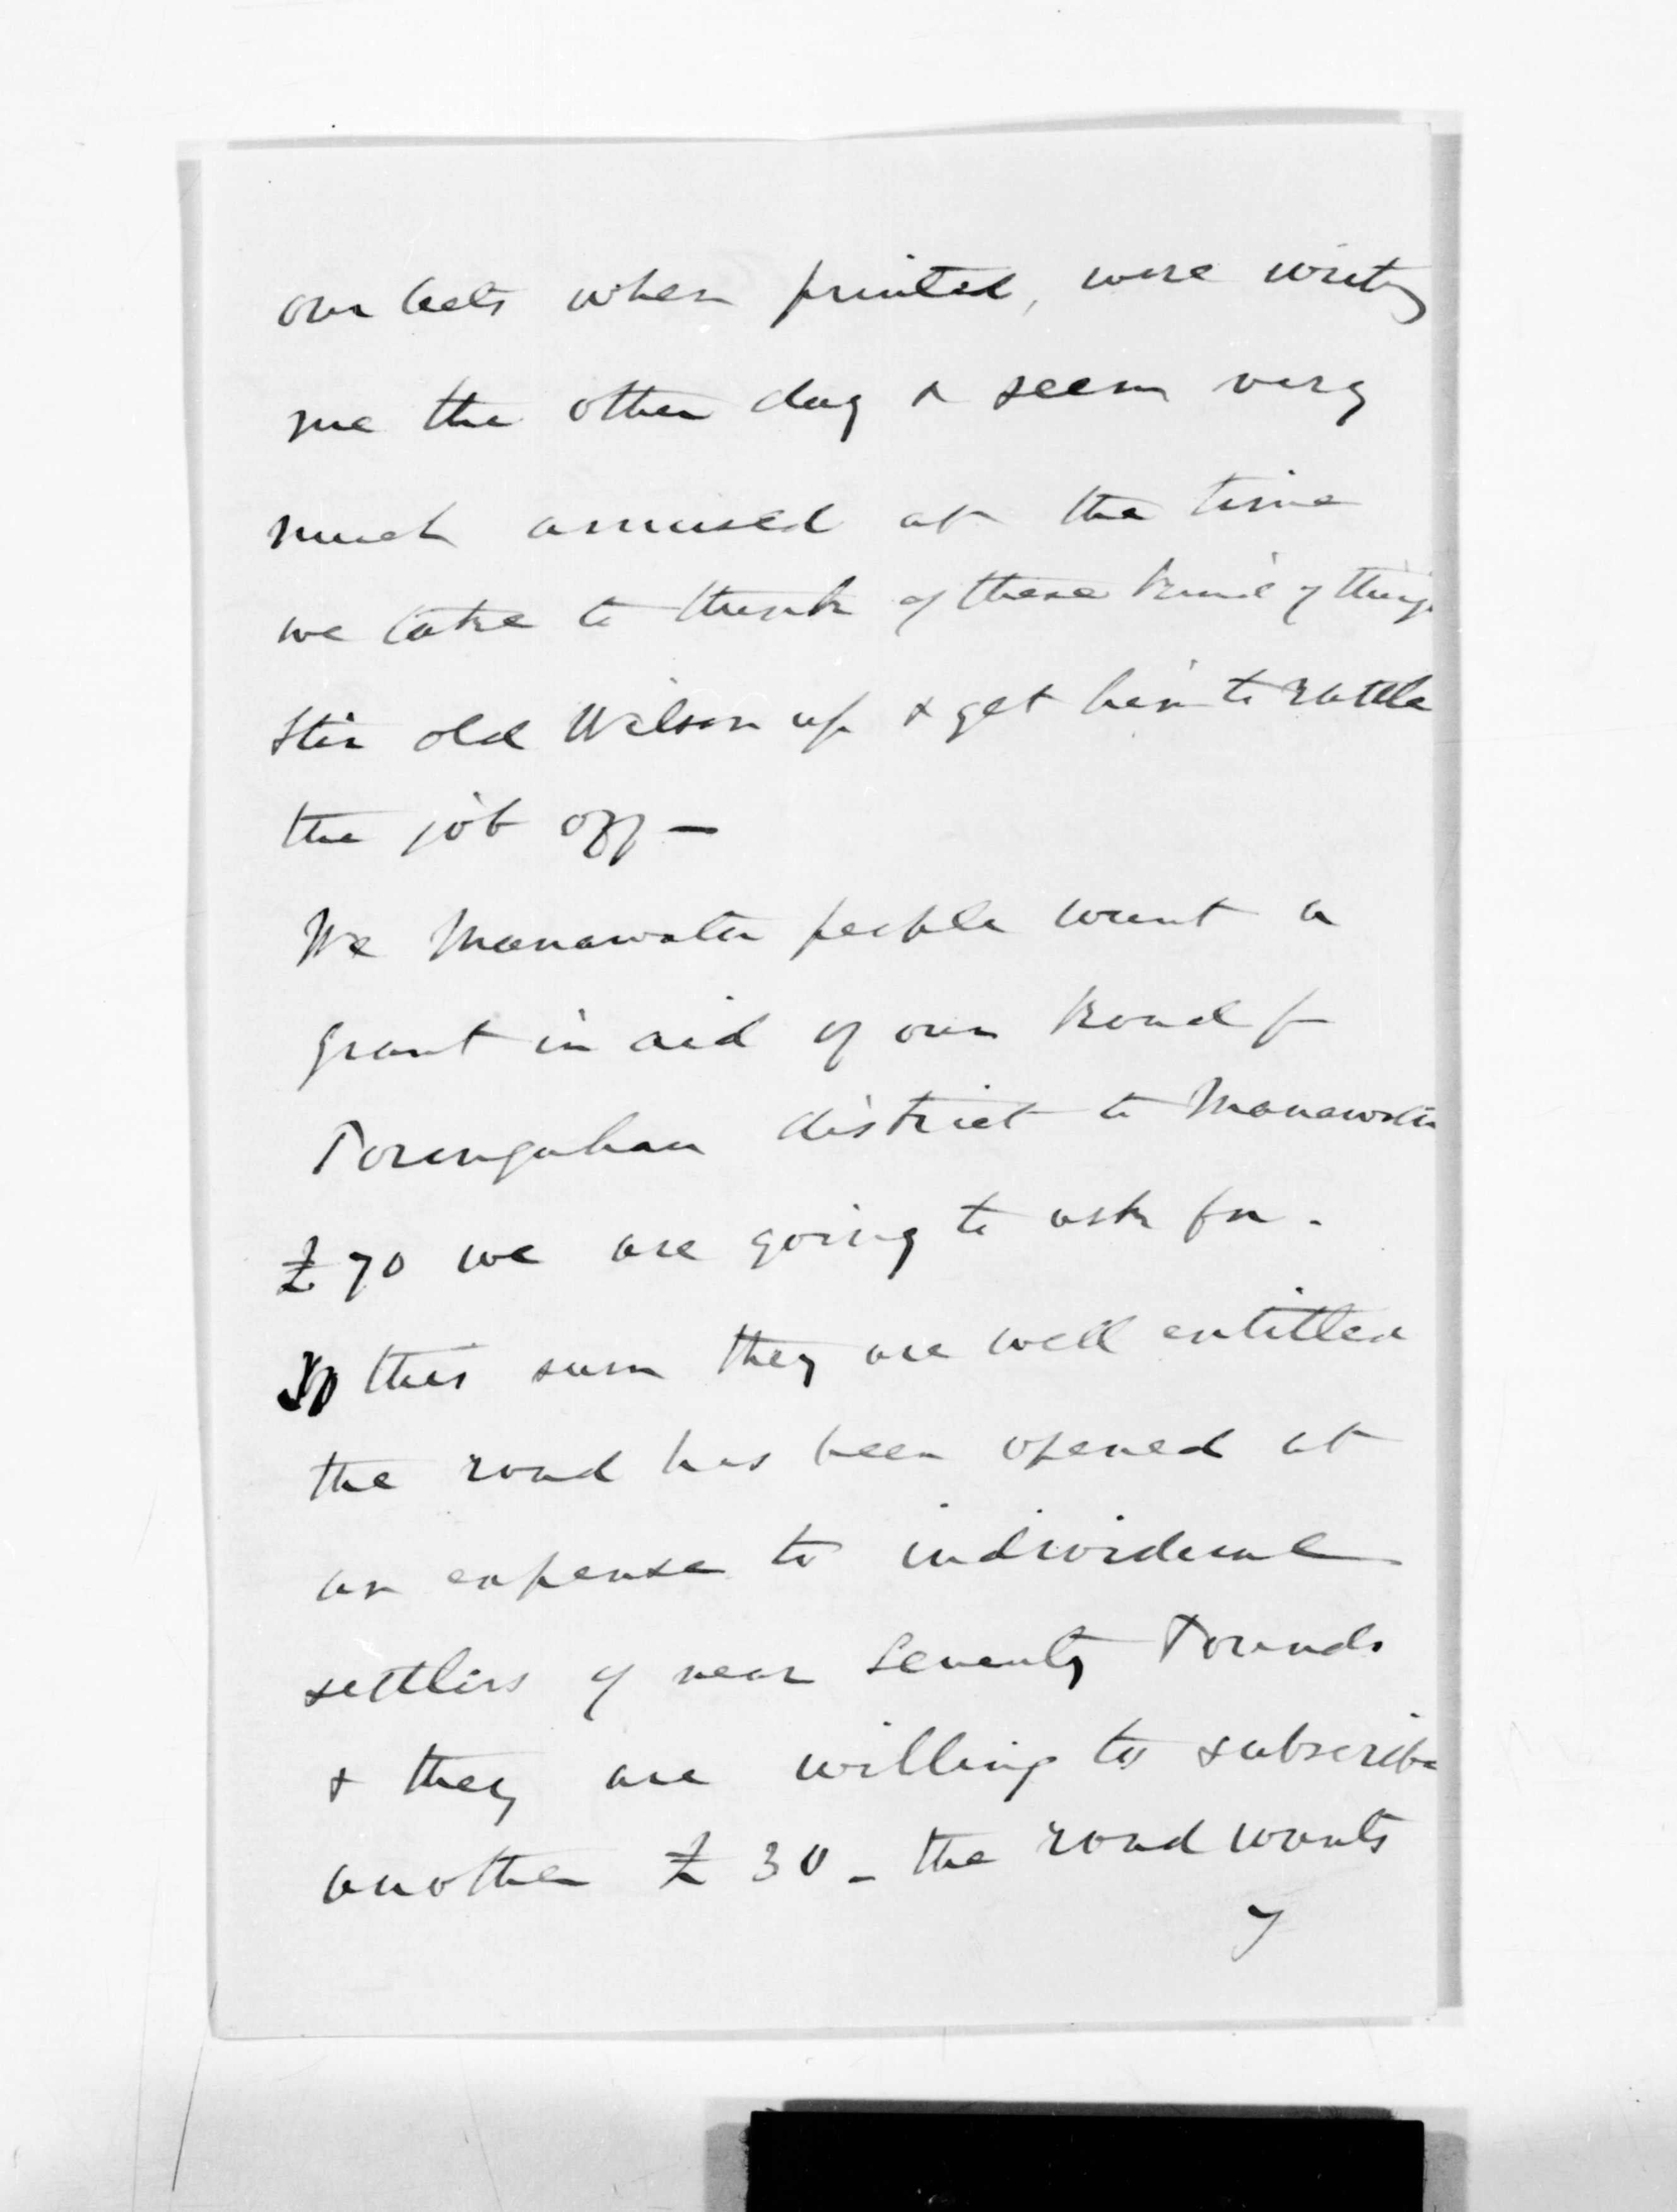 our Acts when printed, were writing
me the other day & seem very
much amused at the time
we take to think of these kind of things
Stir old Wilson up & get him to rattle
the job off —
We Manawatu people want a
grant in aid of our Road fm
Porangahau district to Manawatu
£70 we are going to ask for.
To this sum they are well entitled
the road has been opened at
an expense to individual
settlers of near Seventy Pounds
& they are willing to subscribe
another £30 - the road wants